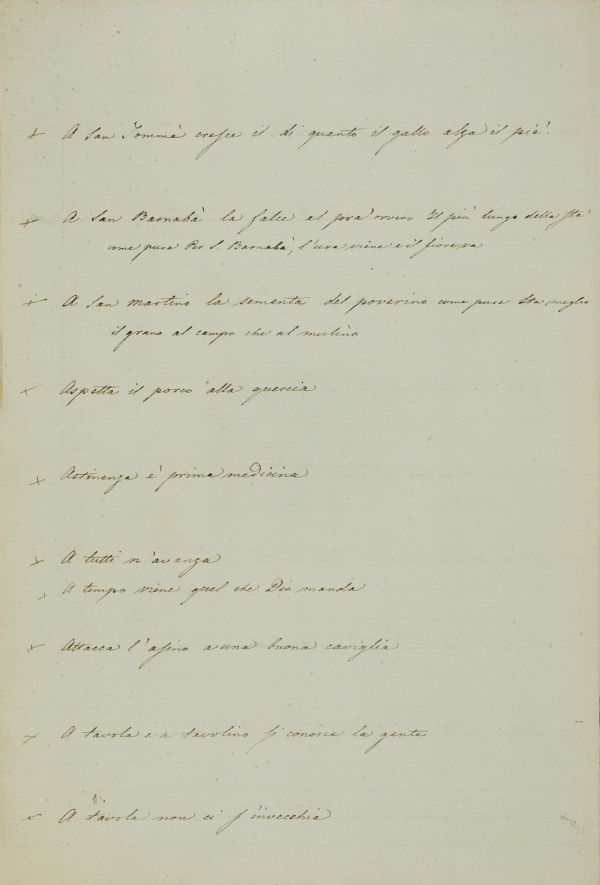 × A San Tommè cresce il dì quanto il gallo alza il piè.
× A San Barnabà la falce al pra' ovvero Il più lungo della sta'
come pure Per S. Barnabà, l'uva viene e il fiore va
× A San Martino la sementa del poverino come pure Sta meglio
il grano al campo che al mulino.
× Aspetta il porco alla quercia
× Astinenza è prima medicina
× A tutti n'avanza
× A tempo viene quel che Dio manda
× Attacca l'asino a una buona caviglia
× A tavola e a tavolino si conosce la gente
× A tavola non ci s'invecchia